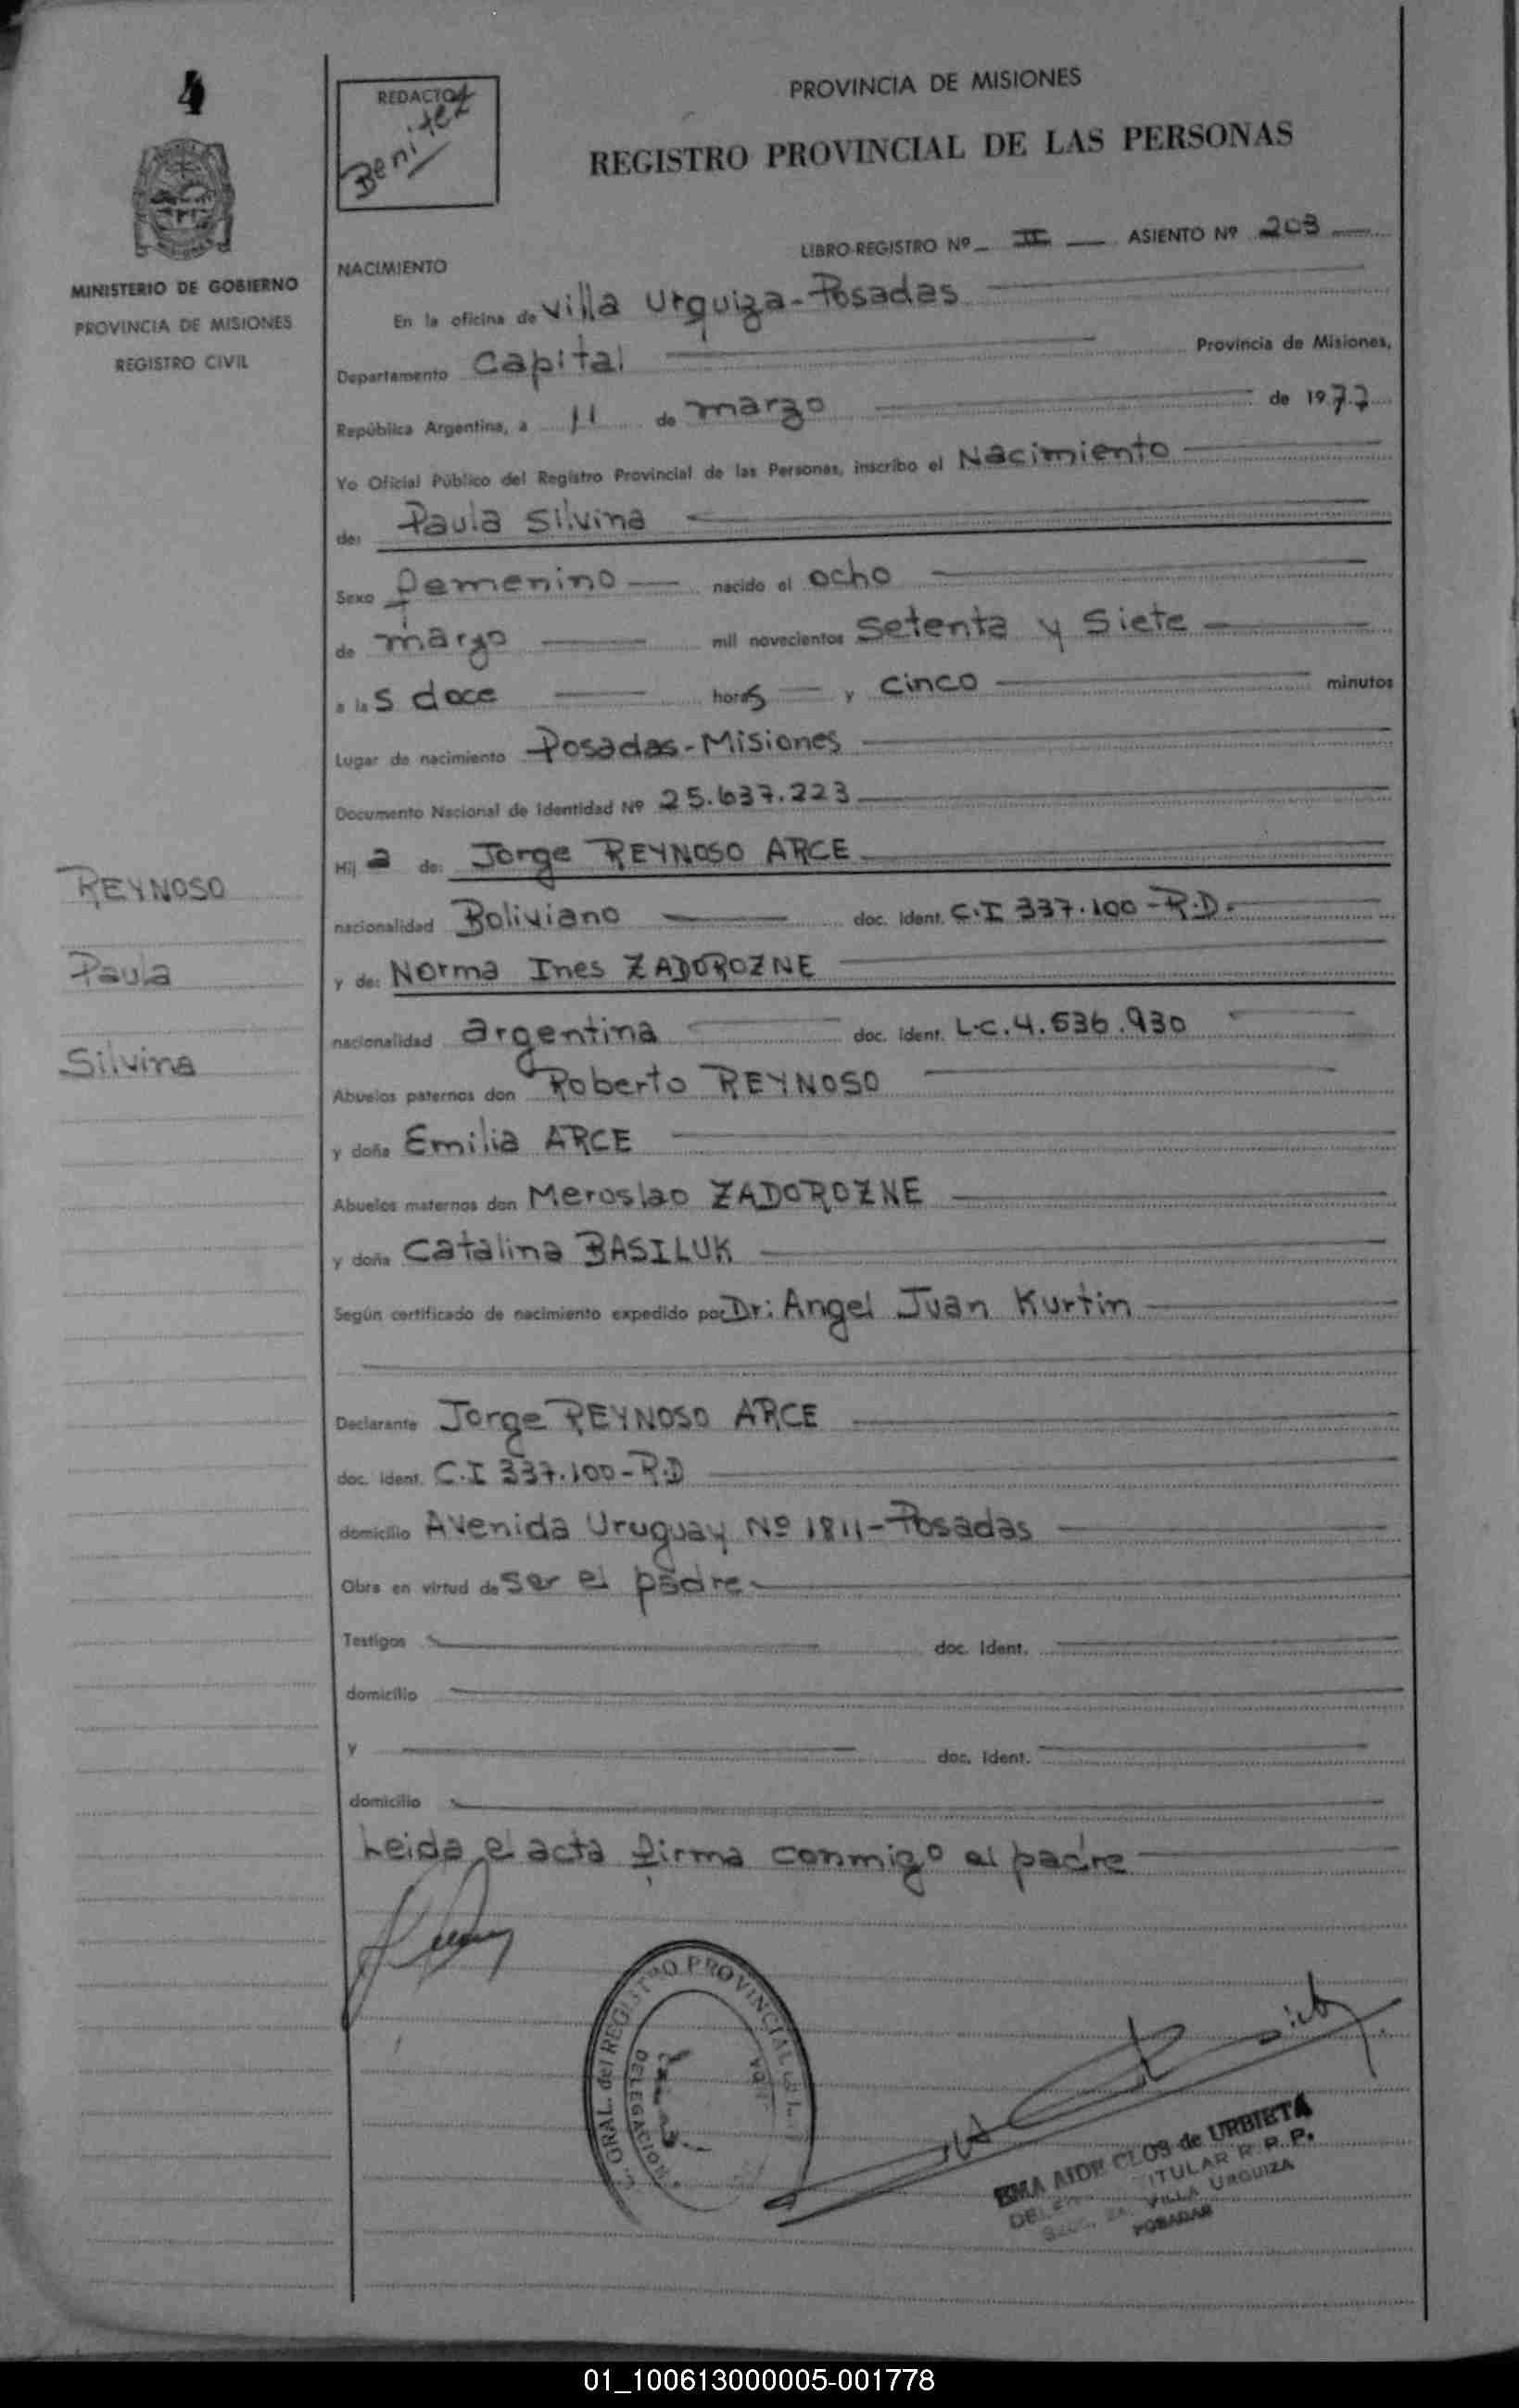 4
MINISTERIO DE GOBIERNO
PROVINCIA DE MISIONES
REGISTRO CIVIL
REYNOSO
Paula
Silvina
REDACTOR
Benitez
PROVINCIA DE MISIONES
REGISTRO PROVINCIAL DE LAS PERSONAS
LIBRO-REGISTRO Nº II ASIENTO Nº 203
NACIMIENTO
En la oficina de Villa Urquiza-Posadas
Departamento Capital Provincia de Misiones,
República Argentina, a 11 de marzo de 1977
Yo Oficial Público del Registro Provincial de las Personas, inscribo el Nacimiento
de: Paula Silvina
Sexo femenino nacido el ocho
de marzo mil novecientos setenta y siete
a las doce horas y cinco minutos
Lugar de nacimiento Posadas-Misiones
Documento Nacional de Identidad Nº 25.637.223
Hija de: Jorge REYNOSO ARCE
nacionalidad Boliviano doc. Ident. C.I 337.100-R.D.
y de: Norma Ines ZADOROZNE
nacionalidad argentina doc. Ident. L.C.4.636.930
Abuelos paternos don Roberto REYNOSO
y doña Emilia ARCE
Abuelos maternos don Meroslao ZADOROZNE
y doña Catalina BASILUK
Según certificado de nacimiento expedido por Dr: Angel Juan Kurtin
Declarante Jorge REYNOSO ARCE
doc. Ident. C.I 337.100-R.D
domicilio Avenida Uruguay Nº 1811-Posadas
Obra en virtud de ser el padre
Testigos doc. Ident.
domicilio
y doc. Ident.
domicilio
Leida el acta firma conmigo el padre
GRAL. del REGISTRO PROVINCIAL
DELEGACION
EMA AIDE CLOS de URBIETA
TITULAR R. P. P.
VILLA URQUIZA
POSADAS
01_100613000005-001778